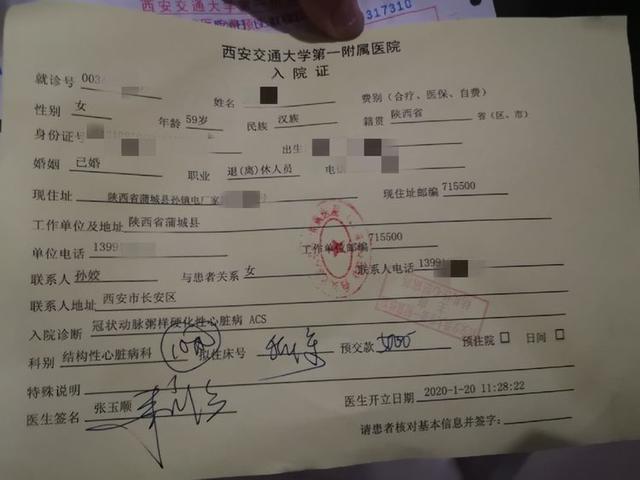 西安交通大学第一
317310
西安交通大学第一附属医院
入院证
就诊号 003 姓名 费别（合疗、医保、自费）
性别 女 年龄 59岁 民族 汉族 籍贯 陕西省 省（区、市）
身份证号 出生
婚姻 已婚 职业 退(离)休人员 电话
现住址 陕西省蒲城县孙镇电厂家 现住址邮编 715500
工作单位及地址 陕西省蒲城县
单位电话 1399 工作单位邮编 715500
联系人 孙姣 与患者关系 女 联系人电话 1399
联系人地址 西安市长安区
入院诊断 冠状动脉粥样硬化性心脏病 ACS
科别 结构性心脏病科 拟住床号 预交款 预住院 □ 日间 □
特殊说明
医生签名 张玉顺 医生开立日期 2020-1-20 11:28:22
请患者核对基本信息并签字：